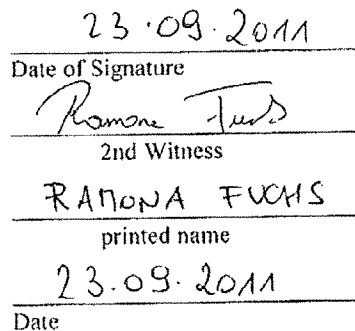 23.09.2011
Date of Signature
Ramona Fuchs
2nd Witness
RAMONA FUCHS
printed name
23.09.2011
Date